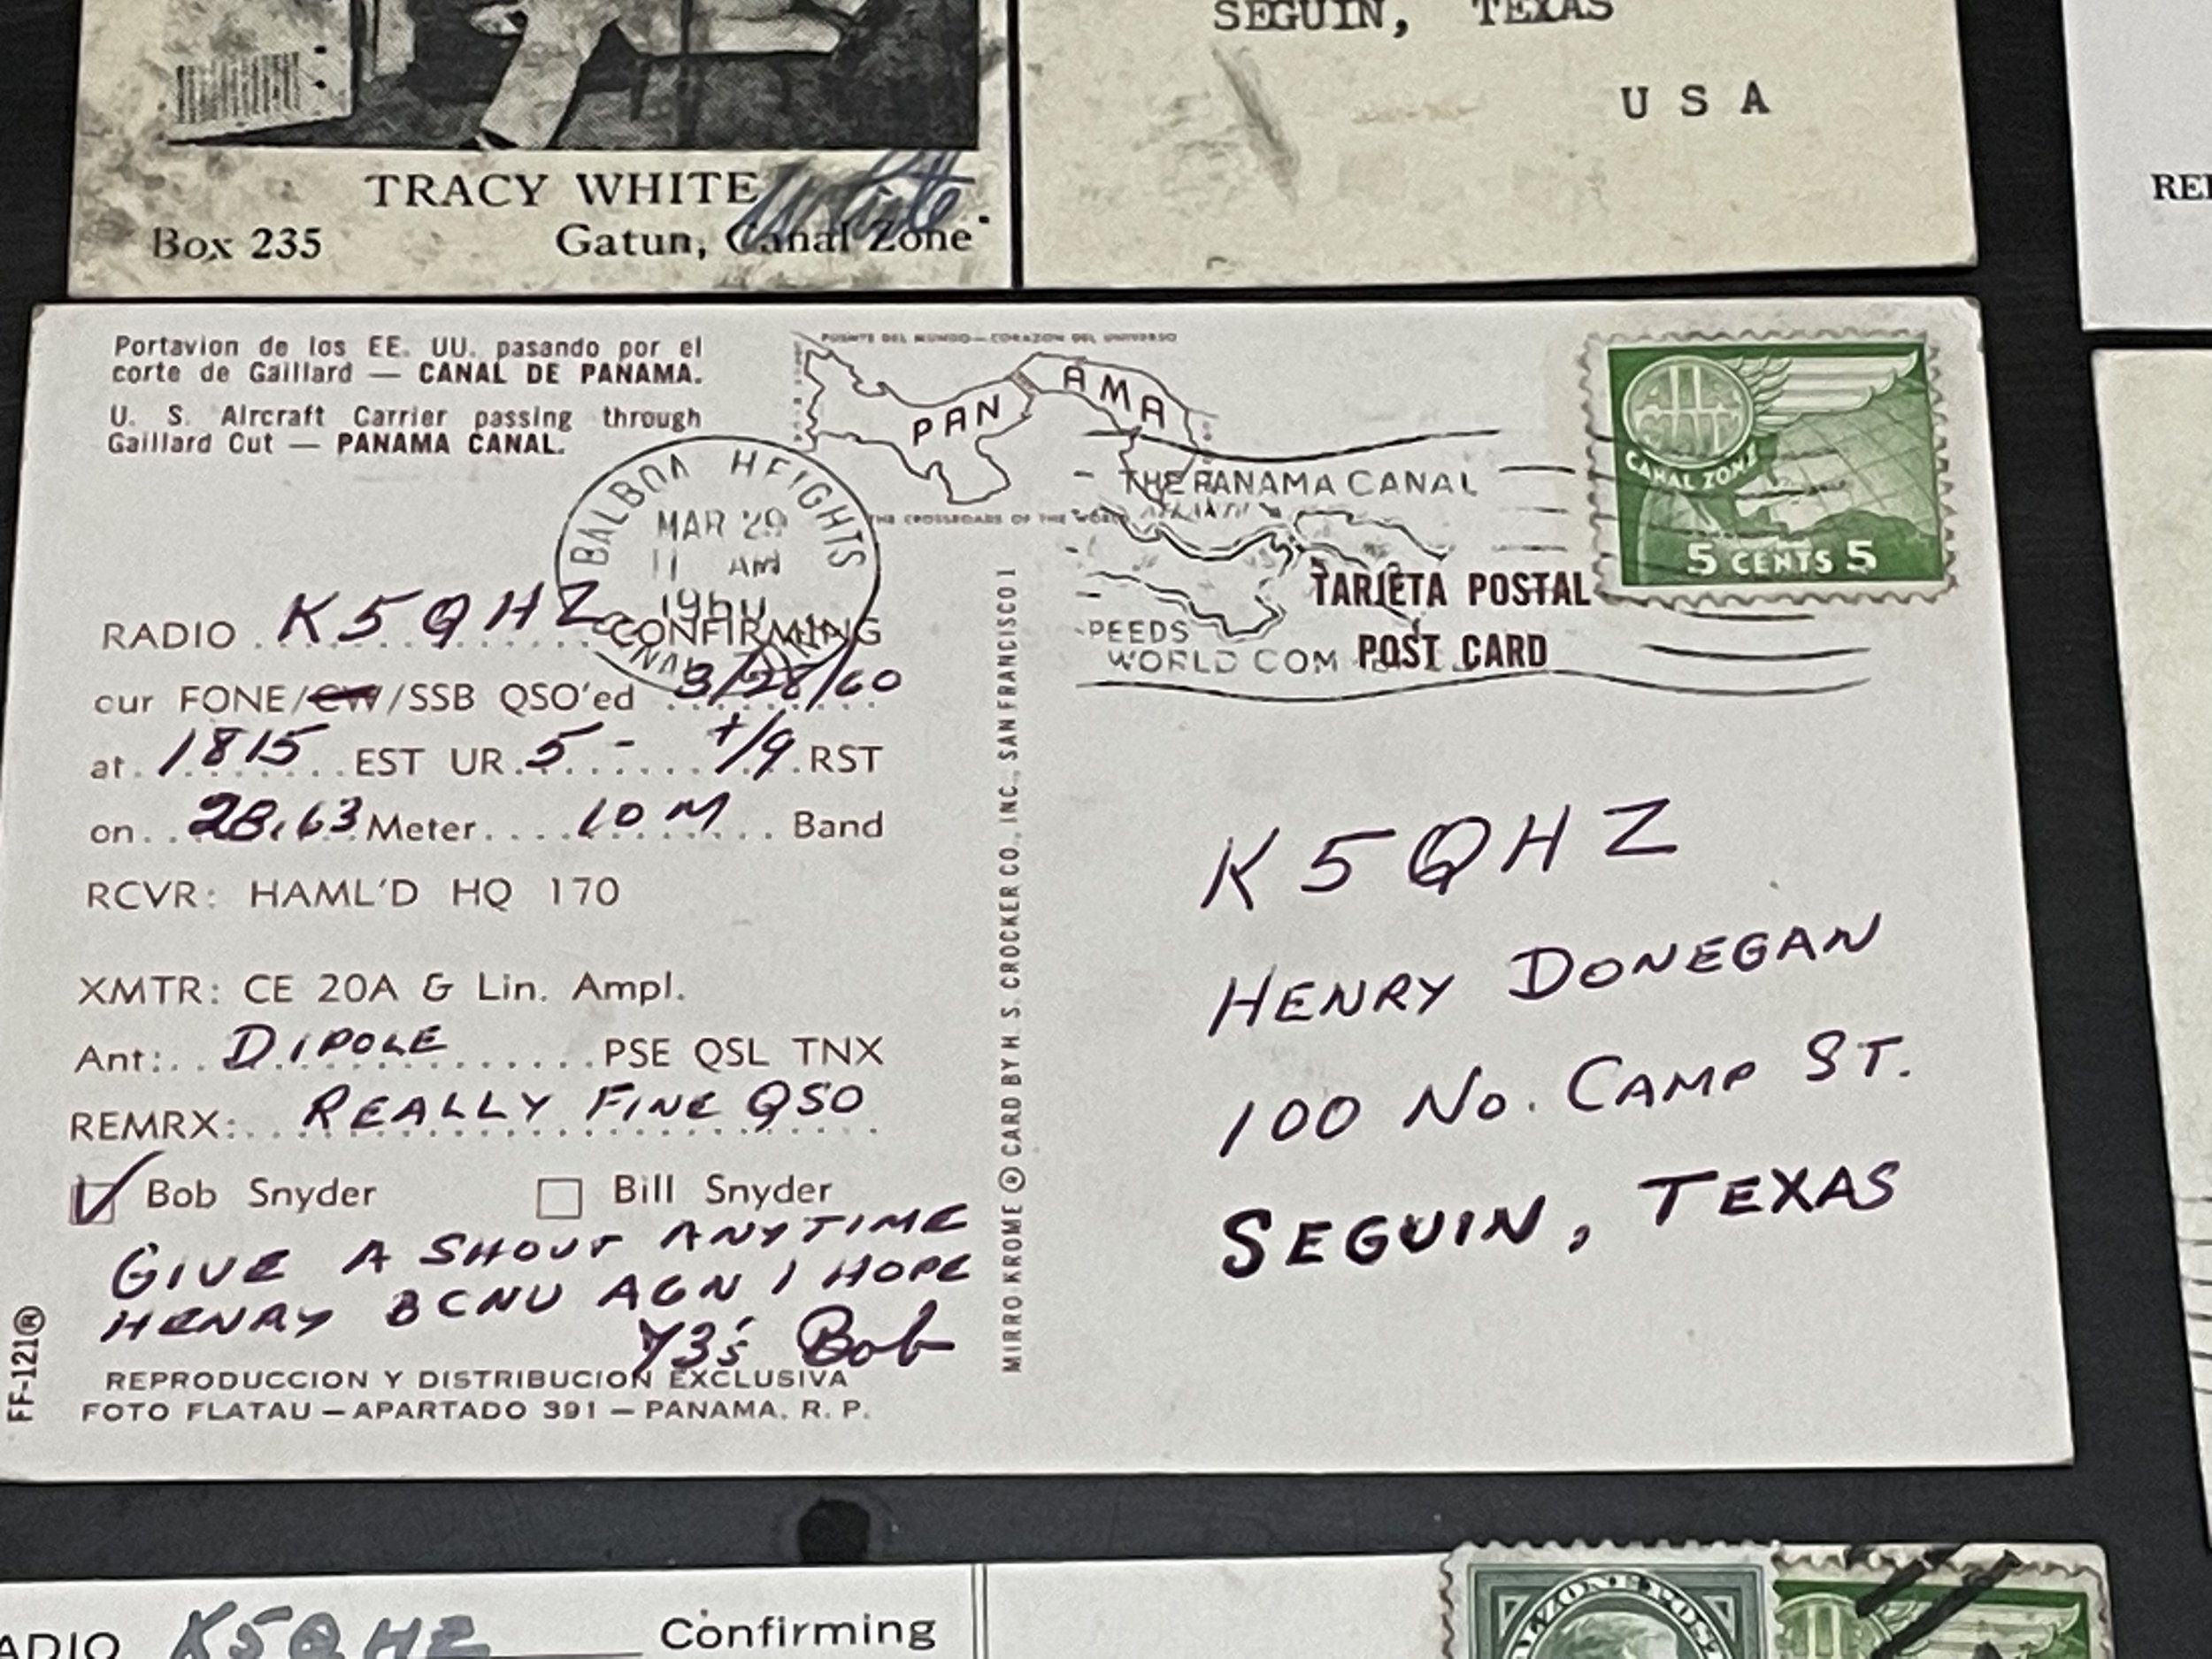 SEGUIN, TEXAS
U S A
TRACY WHITE
Box 235 Gatun, Canal Zone
REI
Portavion de los EE. UU. pasando por el
corte de Gaillard — CANAL DE PANAMA.
U. S. Aircraft Carrier passing through
Gaillard Cut — PANAMA CANAL.
PUENTE DEL MUNDO—CORAZON DEL UNIVERSO
PAN AMA
THE CROSSROADS OF THE WORLD
BALBOA HEIGHTS
MAR 29
11 AM
1960
THE PANAMA CANAL
ATLANTIC
PEEDS
WORLD COM
AIR MAIL
CANAL ZONE
5 CENTS 5
TARJETA POSTAL
POST CARD
RADIO K5QHZ CONFIRMING
our FONE/CW/SSB QSO'ed 3/28/60
at 1815 EST UR 5 - +/9 RST
on 28.63 Meter 10 M Band
RCVR: HAML'D HQ 170
XMTR: CE 20A & Lin. Ampl.
Ant: DIPOLE PSE QSL TNX
REMRX: REALLY FINE QSO
Bob Snyder Bill Snyder
GIVE A SHOUT ANYTIME
HENRY BCNU AGN I HOPE
73's Bob
REPRODUCCION Y DISTRIBUCION EXCLUSIVA
FOTO FLATAU — APARTADO 391 — PANAMA, R. P.
FF-121®
MIRRO KROME ® CARD BY H. S. CROCKER CO., INC., SAN FRANCISCO 1
K5QHZ
HENRY DONEGAN
100 No. CAMP ST.
SEGUIN, TEXAS
ADIO K5QHZ Confirming